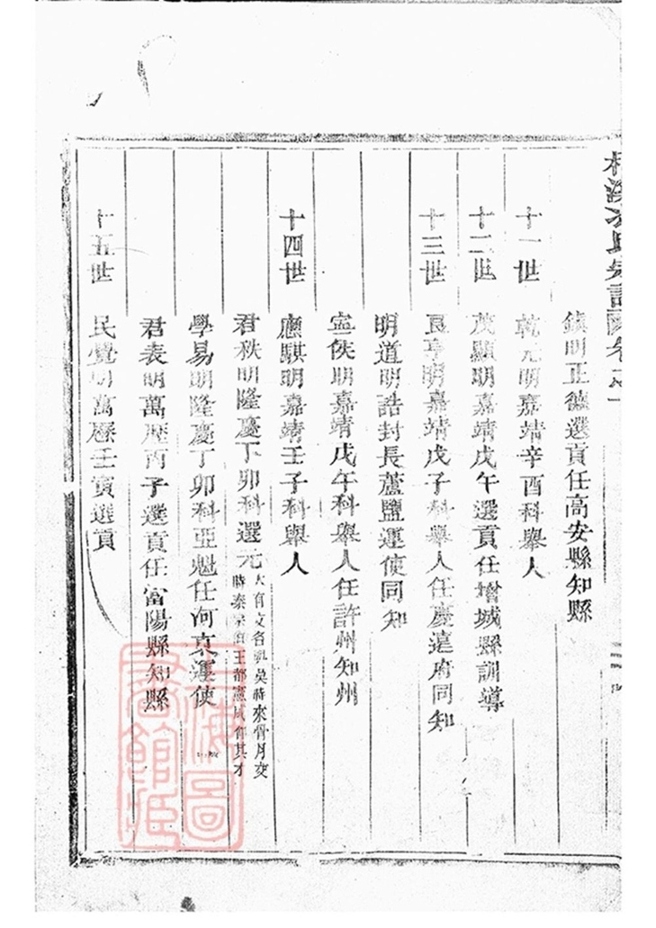 氏宗譜卷之一
鎮明正德選貢任高安縣知縣
十一世 乾元明嘉靖辛酉科舉人
十二世 茂顯明嘉靖戊午選貢任增城縣訓導
十三世 良亨明嘉靖戊子科舉人任慶遠府同知
明道明誥封長蘆鹽運使同知
寍侯明嘉靖戊午科舉人任許州知州
十四世 應騏明嘉靖壬子科舉人
君秩明隆慶丁卯科選元 大有文名 吳 來 月交 時秦 王都憲咸 其才
學易明隆慶丁卯科亞魁任河東運使
君表明萬歷丙子選貢任富陽縣知縣
十五世 民覺明萬歷壬寅選貢
上海圖書館藏